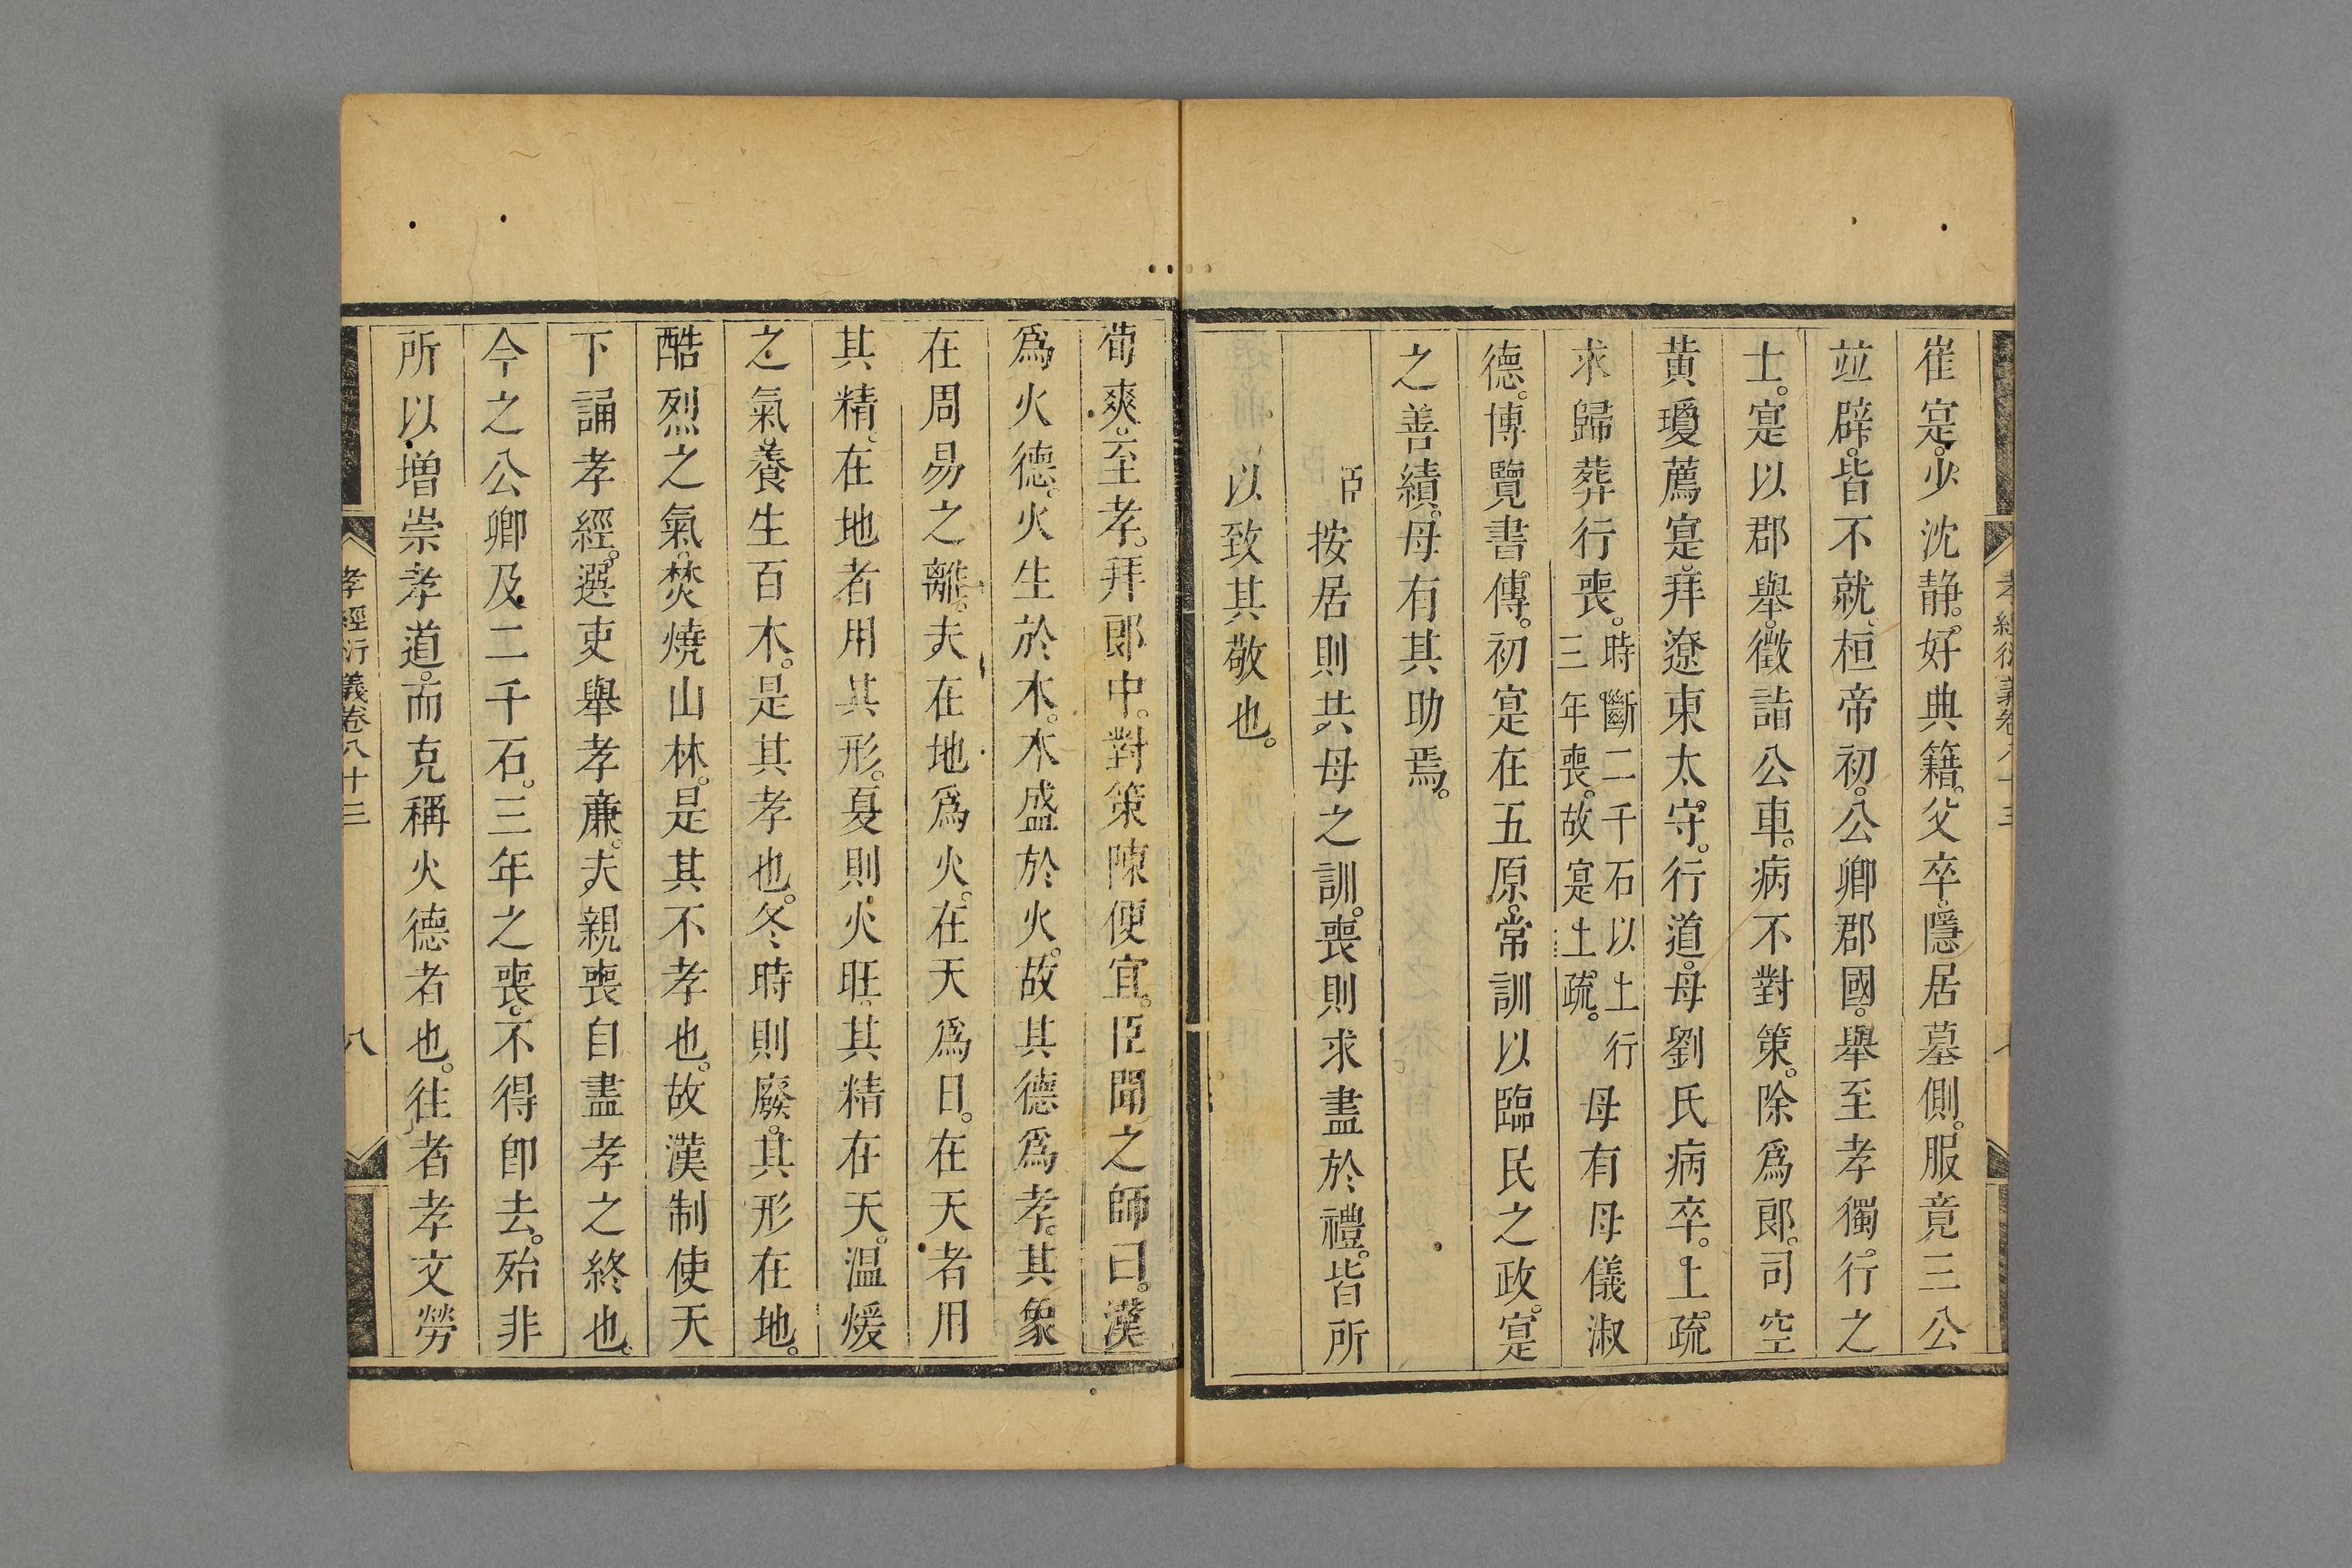 崔寔。少沈靜。好典籍。父卒。隱居墓側。服竟三公
竝辟。皆不就。桓帝初。公卿郡國。舉至孝獨行之
士。寔以郡舉。徵詣公車。病不對策。除爲郎。司空
黃瓊薦寔。拜遼東太守。行道。母劉氏病卒。上疏
求歸葬行喪。時斷二千石以上行三年喪。故寔上疏。母有母儀淑
德。博覽書傳。初寔在五原。常訓以臨民之政。寔
之善績。母有其助焉。
臣按居則共母之訓。喪則求盡於禮。皆所
以致其敬也。
荀爽。至孝。拜郎中。對策陳便宜。臣聞之師曰。漢
爲火德。火生於木。木盛於火。故其德爲孝。其象
在周易之離。夫在地爲火。在天爲日。在天者用
其精。在地者用其形。夏則火旺。其精在天。温煖
之氣。養生百木。是其孝也。冬時則廢。其形在地。
酷烈之氣。焚燒山林。是其不孝也。故漢制使天
下誦孝經。選吏舉孝廉。夫親喪自盡孝之終也。
今之公卿及二千石。三年之喪。不得卽去。殆非
所以增崇孝道。而克稱火德者也。往者孝文勞
孝經衍義卷八十三
八